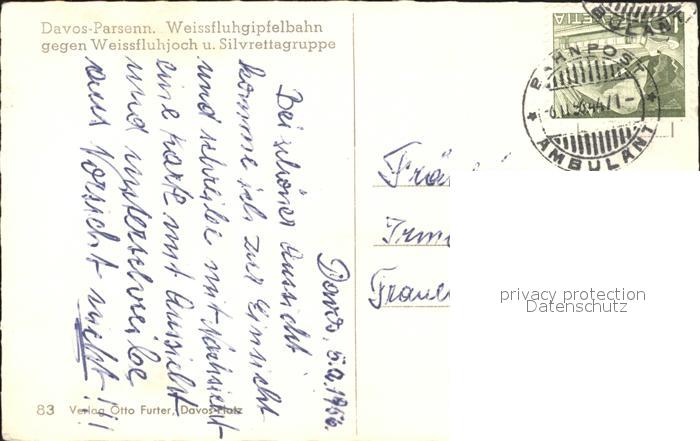 Davos-Parsenn. Weissfluhgipfelbahn
gegen Weissfluhjoch u. Silvrettagruppe
HELVETIA
BAHNPOST
AMBULANT
Davos, 5.2.1956.
Bei schöner Aussicht
komme ich zur Einsicht
und schreibe mit Nachsicht
eine Karte mit Aussicht
und unterschreibe
aus Vorsicht nicht!!!
Irm
Frauen
privacy protection
Datenschutz
83 Verlag Otto Furter, Davos-Platz